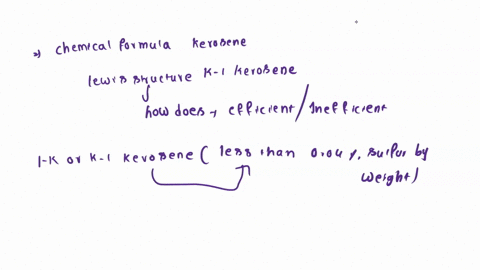 →) chemical formula kerosene
lewis structure K-1 kerosene
how does → efficient/inefficient
1-K or K-1 kerosene (less than 0.04 %. sulfur by
weight)